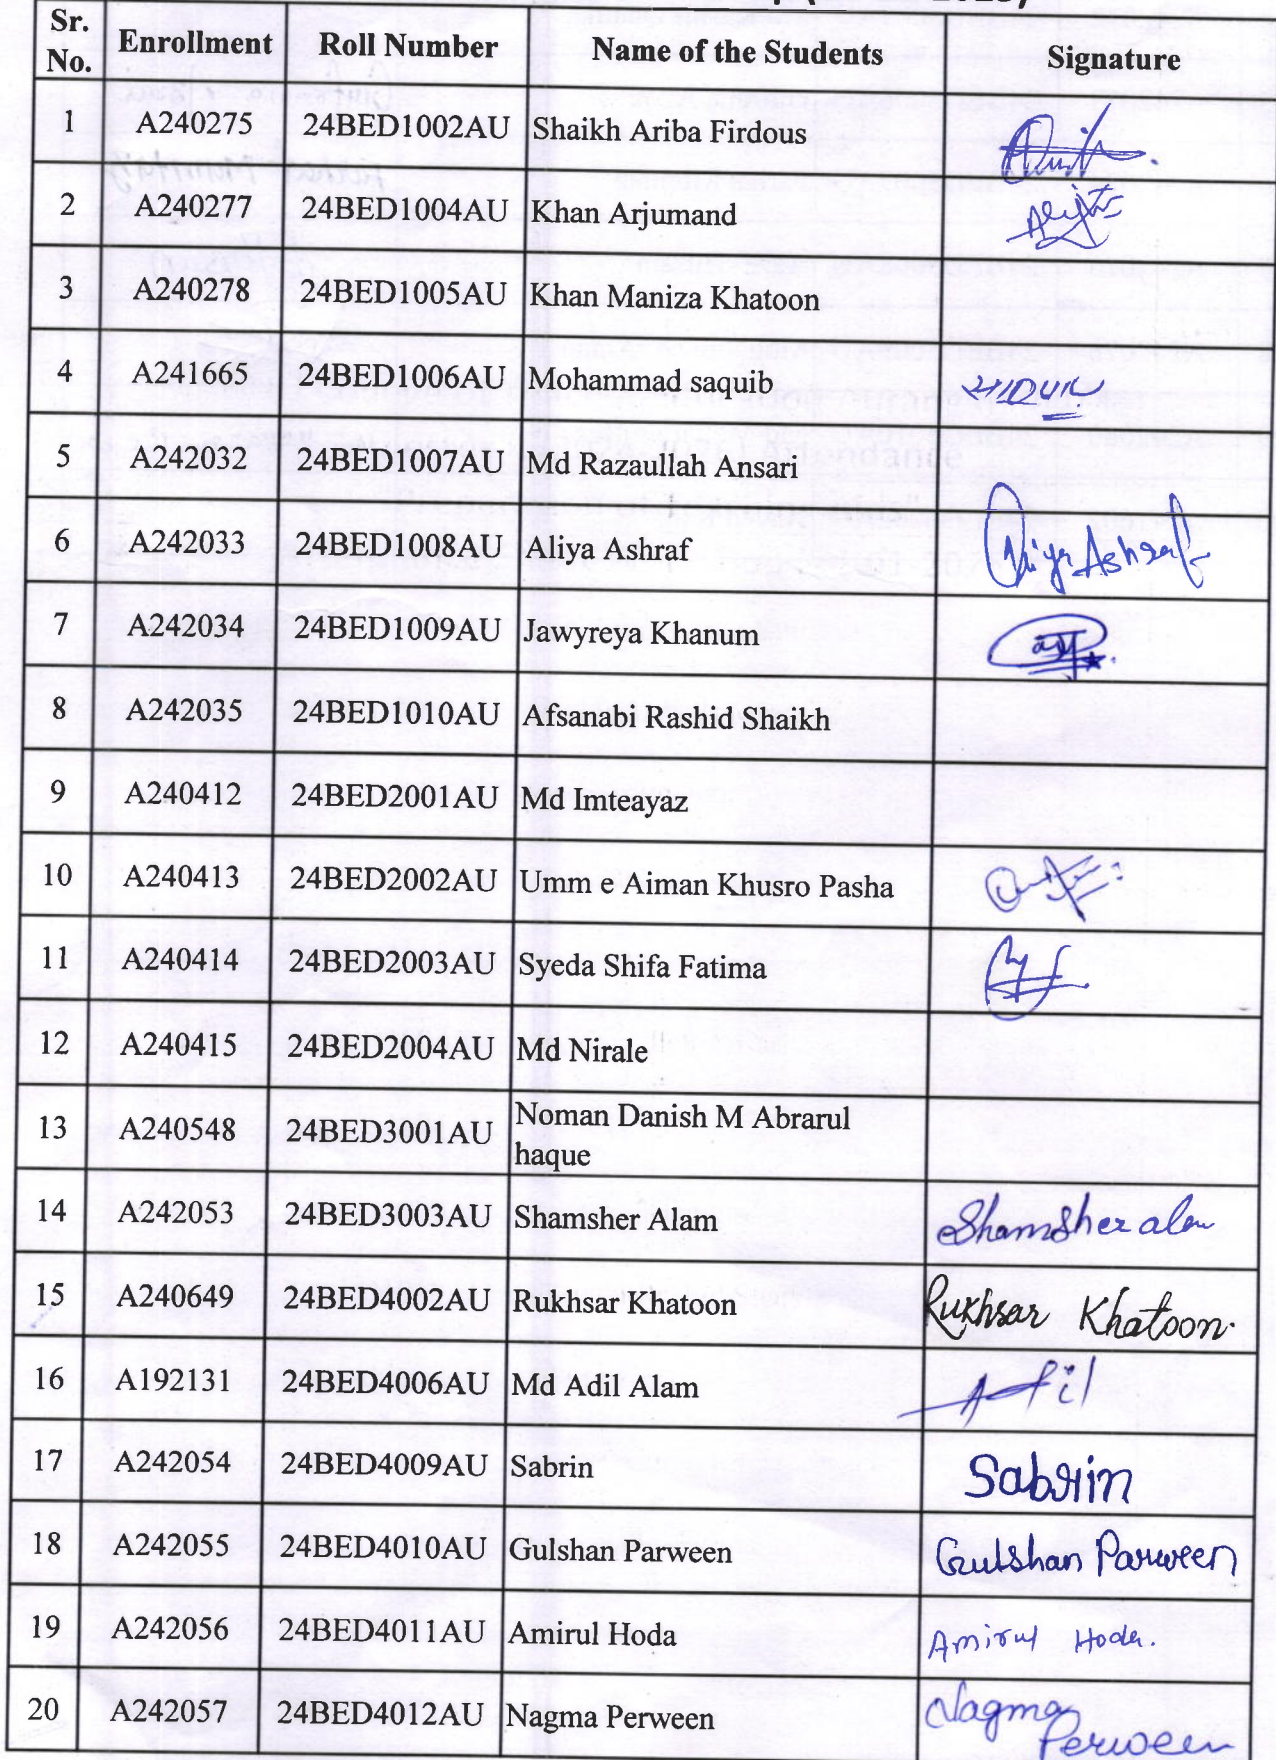 Sr. No. Enrollment Roll Number Name of the Students Signature
1 A240275 24BED1002AU Shaikh Ariba Firdous
2 A240277 24BED1004AU Khan Arjumand
3 A240278 24BED1005AU Khan Maniza Khatoon
4 A241665 24BED1006AU Mohammad saquib
5 A242032 24BED1007AU Md Razaullah Ansari
6 A242033 24BED1008AU Aliya Ashraf Aliya Ashraf
7 A242034 24BED1009AU Jawyreya Khanum
8 A242035 24BED1010AU Afsanabi Rashid Shaikh
9 A240412 24BED2001AU Md Imteayaz
10 A240413 24BED2002AU Umm e Aiman Khusro Pasha
11 A240414 24BED2003AU Syeda Shifa Fatima
12 A240415 24BED2004AU Md Nirale
13 A240548 24BED3001AU Noman Danish M Abrarul
haque
14 A242053 24BED3003AU Shamsher Alam Shamsher alam
15 A240649 24BED4002AU Rukhsar Khatoon Rukhsar Khatoon.
16 A192131 24BED4006AU Md Adil Alam Adil
17 A242054 24BED4009AU Sabrin Sabrin
18 A242055 24BED4010AU Gulshan Parween Gulshan Parween
19 A242056 24BED4011AU Amirul Hoda Amirul Hoda.
20 A242057 24BED4012AU Nagma Perween Nagma
Perween